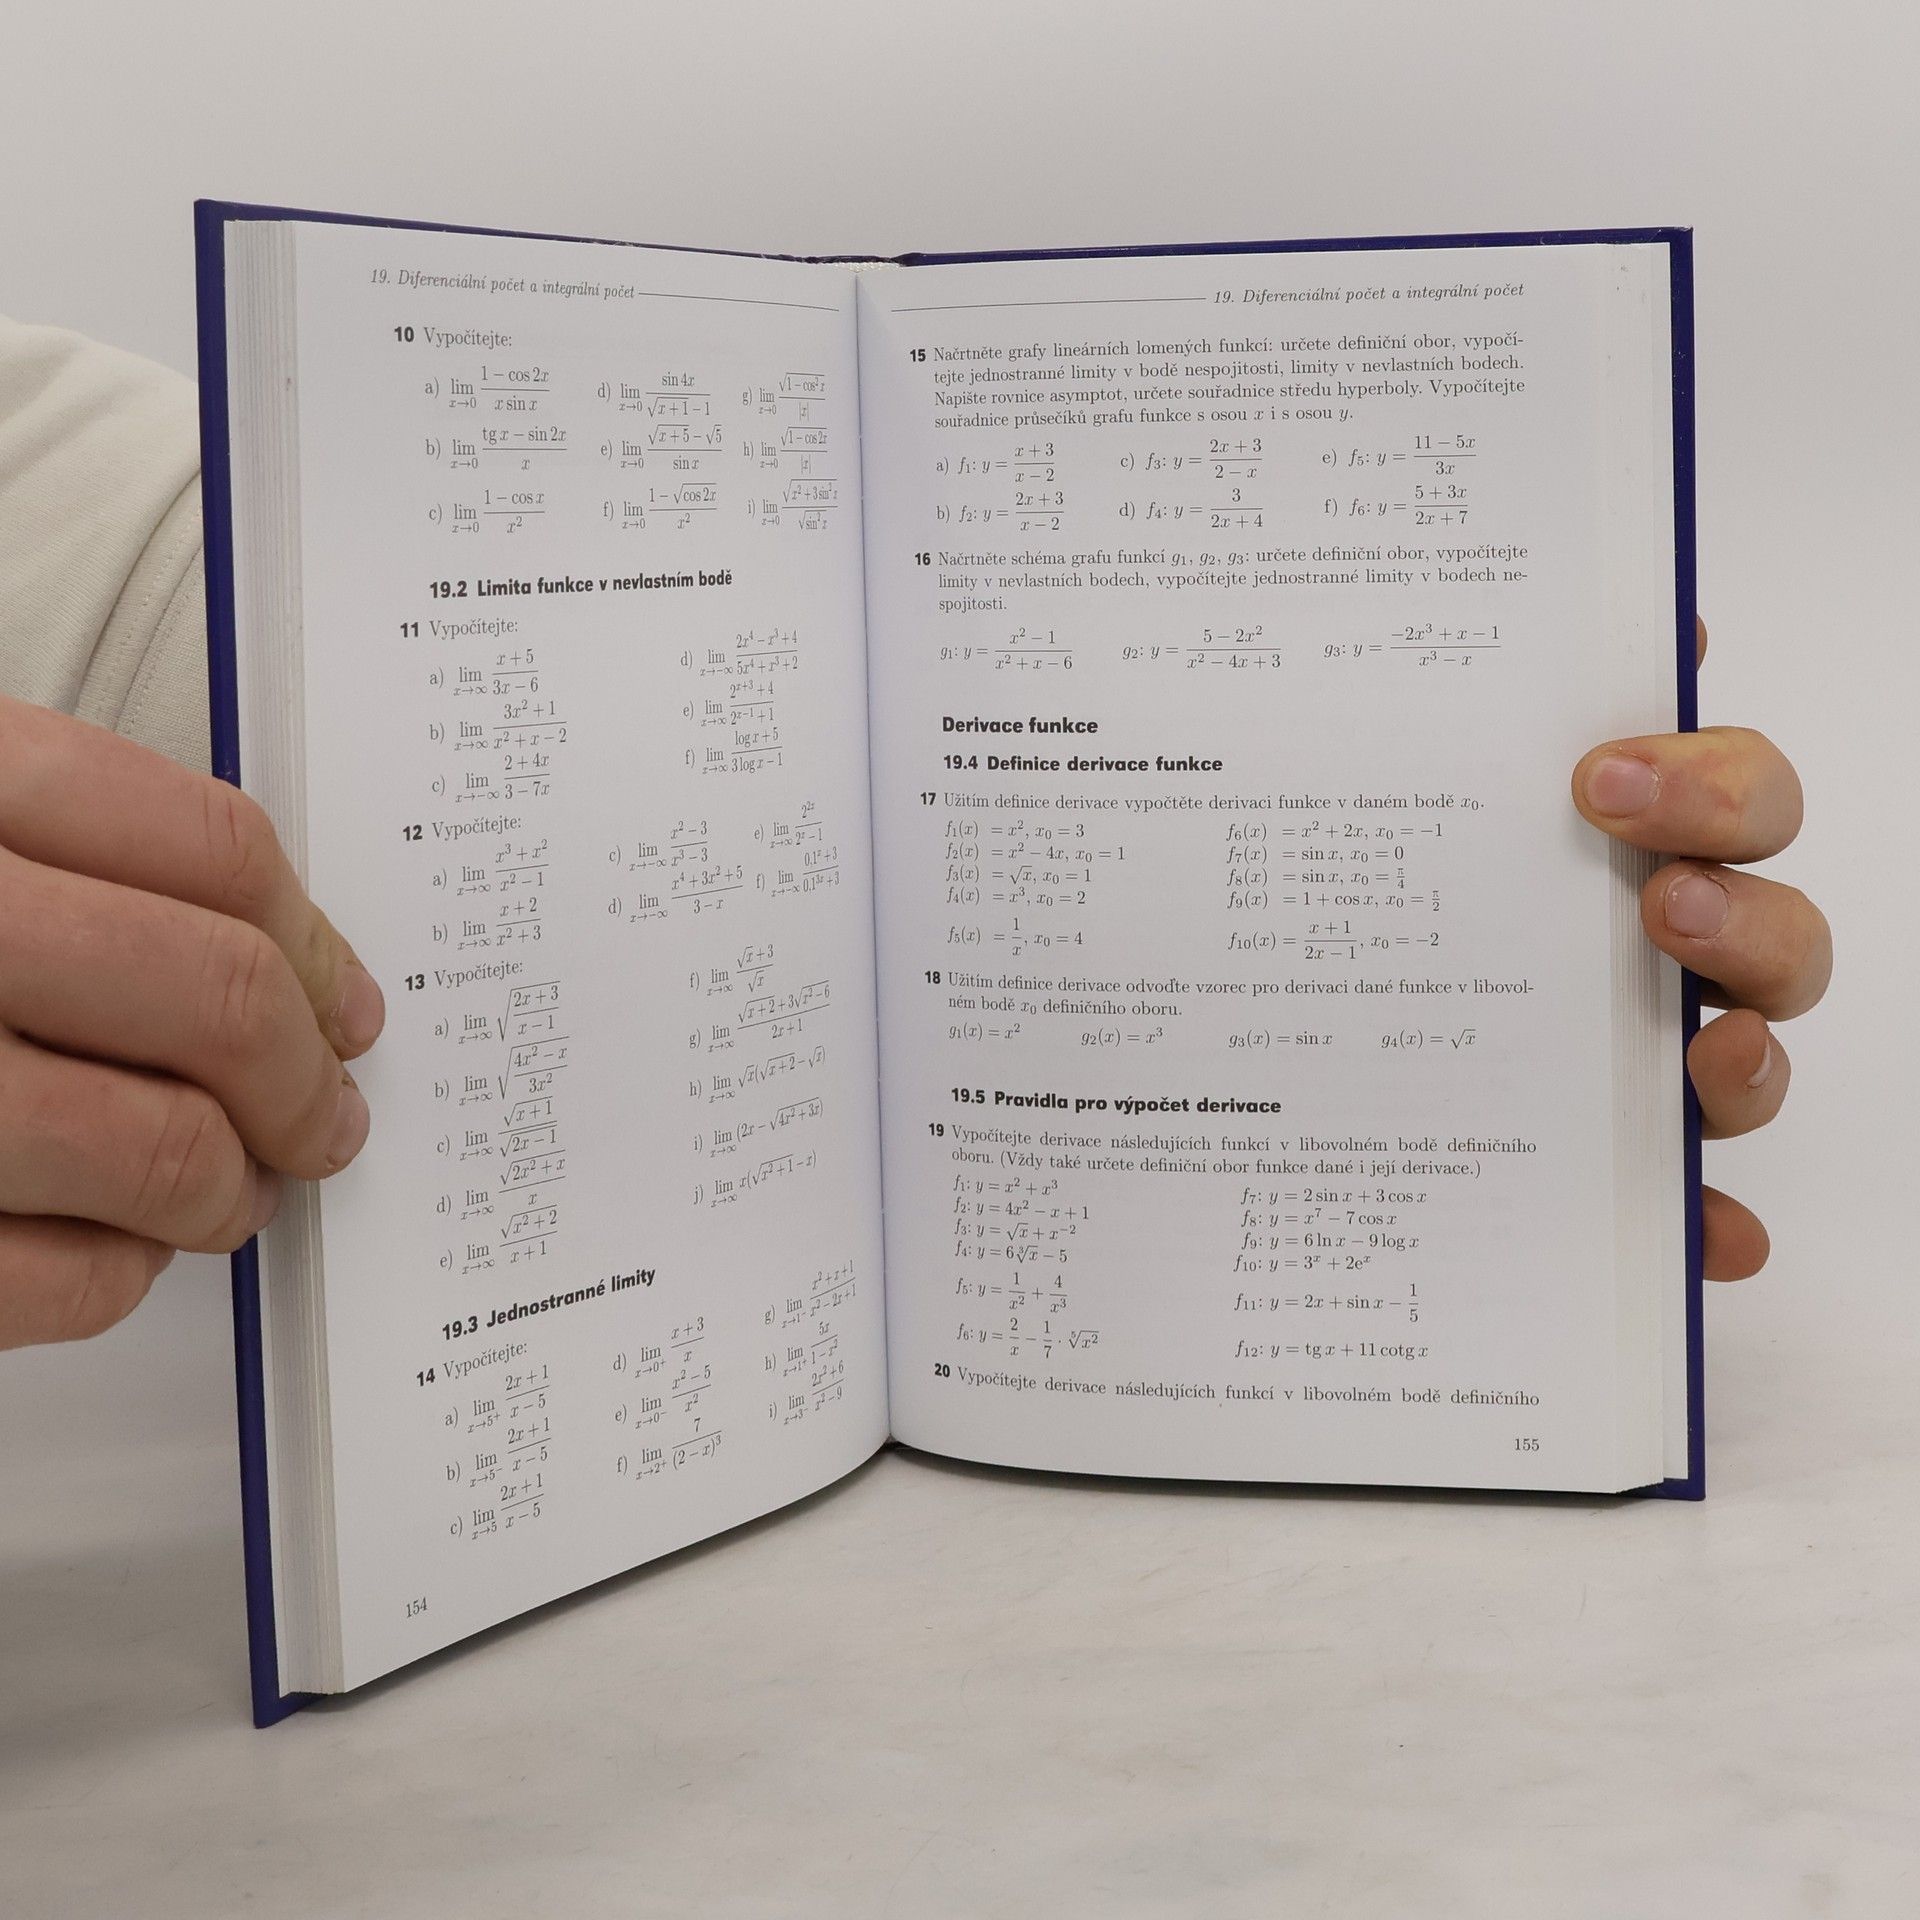 19. Diferenciální počet a integrální počet
10 Vypočítejte:
a) lim x→0 (1 − cos 2x)/(x sin x)
b) lim x→0 (tg x − sin 2x)/x
c) lim x→0 (1 − cos x)/x²
d) lim x→0 sin 4x/(√(x + 1) − 1)
e) lim x→0 (√(x + 5) − √5)/sin x
f) lim x→0 (1 − √(cos 2x))/x²
g) lim x→0 √(1 − cos² x)/|x|
h) lim x→0 √(1 − cos 2x)/|x|
i) lim x→0 √(x² + 3 sin² x)/√(sin² x)
19.2 Limita funkce v nevlastním bodě
11 Vypočítejte:
a) lim x→∞ (x + 5)/(3x − 6)
b) lim x→∞ (3x² + 1)/(x² + x − 2)
c) lim x→−∞ (2 + 4x)/(3 − 7x)
d) lim x→−∞ (2x⁴ − x³ + 4)/(5x⁴ + x³ + 2)
e) lim x→∞ (2ˣ⁺³ + 4)/(2ˣ⁻¹ + 1)
f) lim x→∞ (log x + 5)/(3 log x − 1)
12 Vypočítejte:
a) lim x→∞ (x³ + x²)/(x² − 1)
b) lim x→∞ (x + 2)/(x² + 3)
c) lim x→−∞ (x² − 3)/(x³ − 3)
d) lim x→−∞ (x⁴ + 3x² + 5)/(3 − x)
e) lim x→∞ 2²ˣ/(2ˣ − 1)
f) lim x→−∞ (0,1ˣ + 3)/(0,1³ˣ + 3)
13 Vypočítejte:
a) lim x→∞ √((2x + 3)/(x − 1))
b) lim x→∞ √((4x² − x)/(3x²))
c) lim x→∞ √(x + 1)/√(2x − 1)
d) lim x→∞ √(2x² + x)/x
e) lim x→∞ √(x² + 2)/(x + 1)
f) lim x→∞ (√x + 3)/√x
g) lim x→∞ (√(x + 2) + 3√(x² − 6))/(2x + 1)
h) lim x→∞ √x(√(x + 2) − √x)
i) lim x→∞ (2x − √(4x² + 3x))
j) lim x→∞ x(√(x² + 1) − x)
19.3 Jednostranné limity
14 Vypočítejte:
a) lim x→5⁺ (2x + 1)/(x − 5)
b) lim x→5⁻ (2x + 1)/(x − 5)
c) lim x→5 (2x + 1)/(x − 5)
d) lim x→0⁺ (x + 3)/x
e) lim x→0⁻ (x² − 5)/x²
f) lim x→2⁺ 7/(2 − x)³
g) lim x→1⁻ (x² + x + 1)/(x² − 2x + 1)
h) lim x→1⁺ 5x/(1 − x²)
i) lim x→3⁻ (2x² + 6)/(x² − 9)
154
19. Diferenciální počet a integrální počet
15 Načrtněte grafy lineárních lomených funkcí: určete definiční obor, vypočí-
tejte jednostranné limity v bodě nespojitosti, limity v nevlastních bodech.
Napište rovnice asymptot, určete souřadnice středu hyperboly. Vypočítejte
souřadnice průsečíků grafu funkce s osou x i s osou y.
a) f₁: y = (x + 3)/(x − 2) c) f₃: y = (2x + 3)/(2 − x) e) f₅: y = (11 − 5x)/(3x)
b) f₂: y = (2x + 3)/(x − 2) d) f₄: y = 3/(2x + 4) f) f₆: y = (5 + 3x)/(2x + 7)
16 Načrtněte schéma grafu funkcí g₁, g₂, g₃: určete definiční obor, vypočítejte
limity v nevlastních bodech, vypočítejte jednostranné limity v bodech ne-
spojitosti.
g₁: y = (x² − 1)/(x² + x − 6) g₂: y = (5 − 2x²)/(x² − 4x + 3) g₃: y = (−2x³ + x − 1)/(x³ − x)
Derivace funkce
19.4 Definice derivace funkce
17 Užitím definice derivace vypočtěte derivaci funkce v daném bodě x₀.
f₁(x) = x², x₀ = 3 f₆(x) = x² + 2x, x₀ = −1
f₂(x) = x² − 4x, x₀ = 1 f₇(x) = sin x, x₀ = 0
f₃(x) = √x, x₀ = 1 f₈(x) = sin x, x₀ = π/4
f₄(x) = x³, x₀ = 2 f₉(x) = 1 + cos x, x₀ = π/2
f₅(x) = 1/x, x₀ = 4 f₁₀(x) = (x + 1)/(2x − 1), x₀ = −2
18 Užitím definice derivace odvoďte vzorec pro derivaci dané funkce v libovol-
ném bodě x₀ definičního oboru.
g₁(x) = x² g₂(x) = x³ g₃(x) = sin x g₄(x) = √x
19.5 Pravidla pro výpočet derivace
19 Vypočítejte derivace následujících funkcí v libovolném bodě definičního
oboru. (Vždy také určete definiční obor funkce dané i její derivace.)
f₁: y = x² + x³ f₇: y = 2 sin x + 3 cos x
f₂: y = 4x² − x + 1 f₈: y = x⁷ − 7 cos x
f₃: y = √x + x⁻² f₉: y = 6 ln x − 9 log x
f₄: y = 6∛x − 5 f₁₀: y = 3ˣ + 2eˣ
f₅: y = 1/x² + 4/x³ f₁₁: y = 2x + sin x − 1/5
f₆: y = 2/x − 1/7 · ⁵√(x²) f₁₂: y = tg x + 11 cotg x
20 Vypočítejte derivace následujících funkcí v libovolném bodě definičního
155